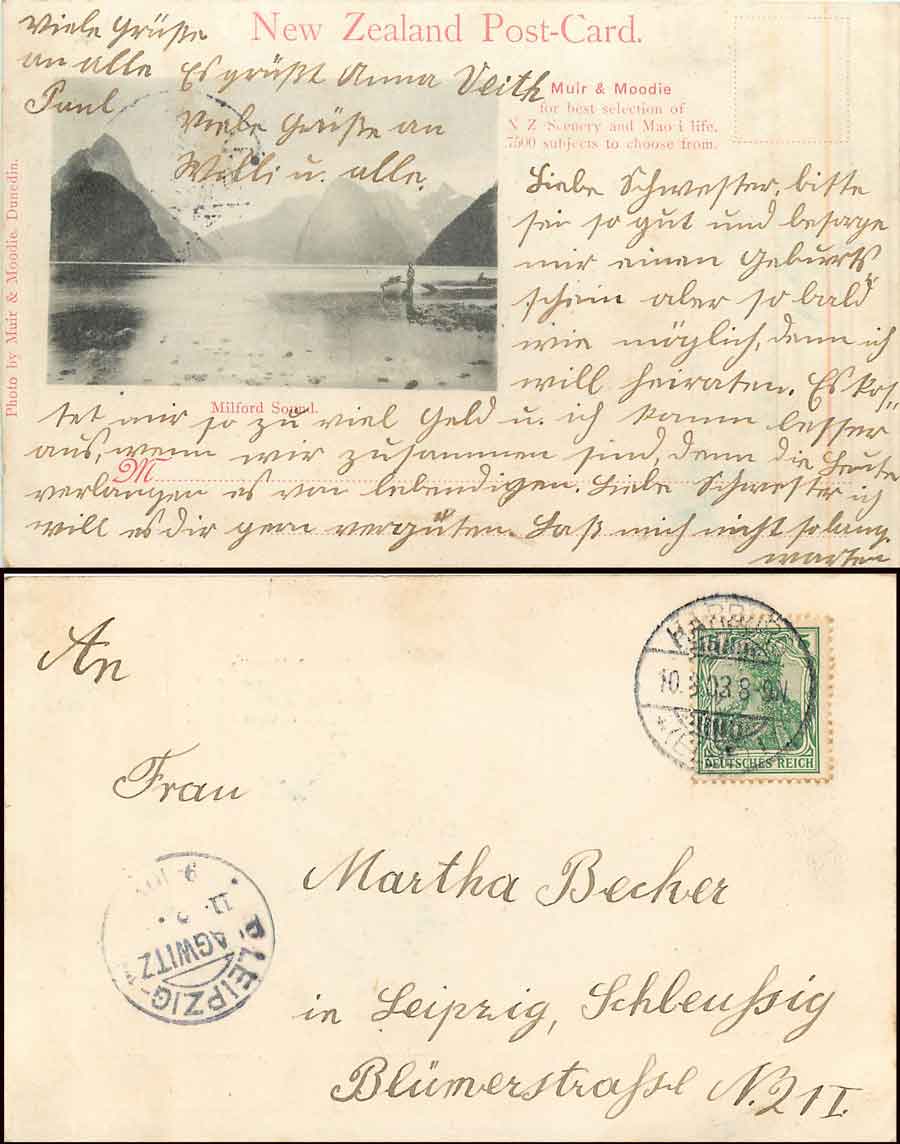 New Zealand Post-Card.
Viele Grüße
an alle
Paul
Es grüßt Anna Veith
Viele Grüße an
Willi u. alle.
Muir & Moodie
for best selection of
N Z Scenery and Mao i life.
7500 subjects to choose from.
Photo by Muir & Moodie, Dunedin.
Liebe Schwester, bitte
sei so gut und besage
mir einen Geburts
schein aber so bald
wie möglich, denn ich
will heiraten. Es kos-
Milford Sound.
tet mir so zu viel Geld u. ich komm besser
aus, wenn wir zusammen sind, denn die Leute
M
verlangen es von lebendigen. Liebe Schwester ich
will es dir gern vergüten. Laß mich nicht so lang
warten
An
HARBURG
10. 3. 03. 8-9 V
DEUTSCHES REICH
Frau
Martha Becker
LEIPZIG-
AGWITZ
in Leipzig, Schleussig
Blümerstrasse N. 2 I.